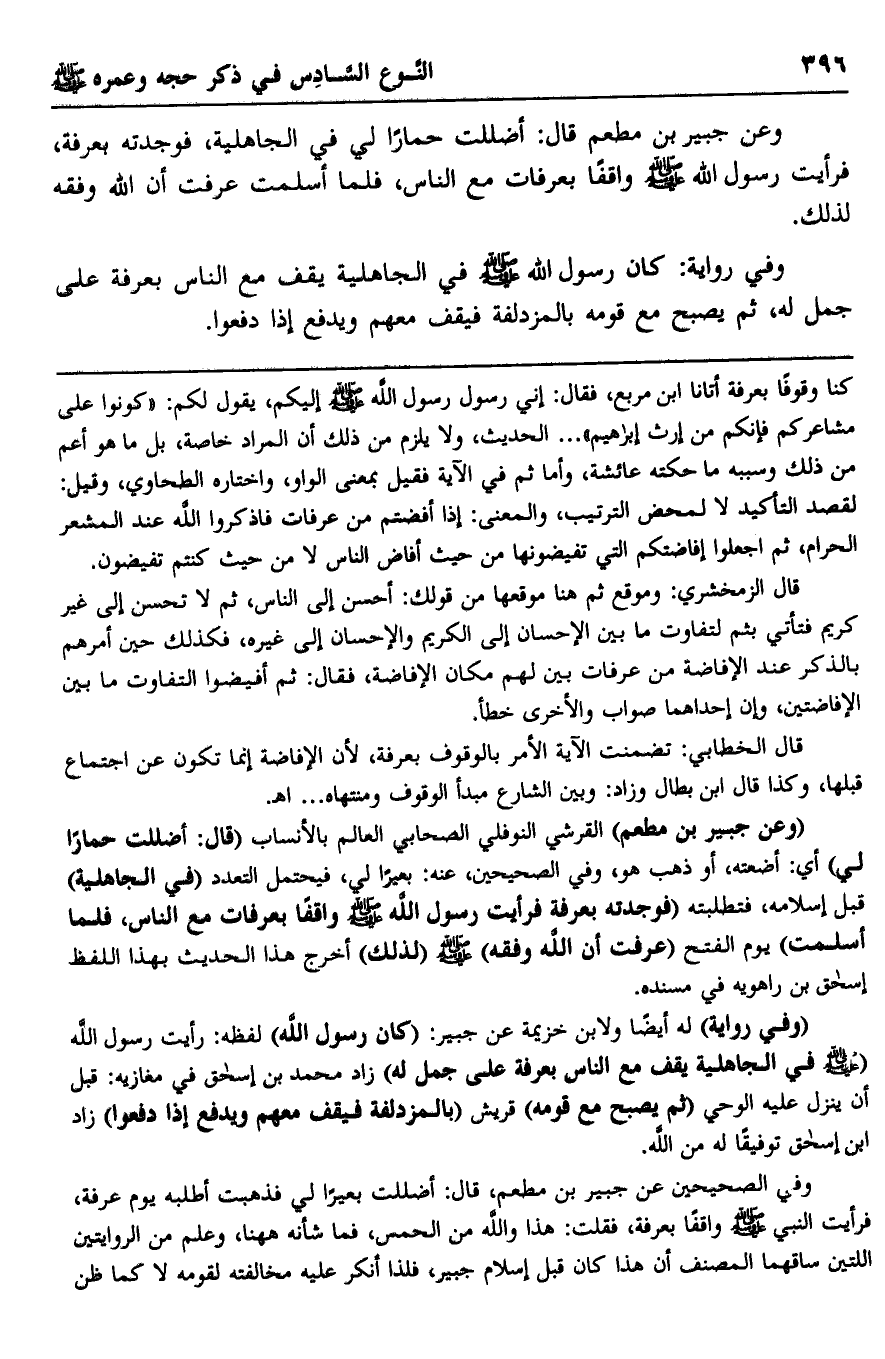 ٣٩٦
النَّوع السَّادِس في ذكر حجه وعمره ﷺ
وعن جبير بن مطعم قال: أضللت حمارًا لي في الجاهلية، فوجدته بعرفة،
فرأيت رسول الله ﷺ واقفًا بعرفات مع الناس، فلما أسلمت عرفت أن الله وفقه
لذلك.
وفي رواية: كان رسول الله ﷺ في الجاهلية يقف مع الناس بعرفة على
جمل له، ثم يصبح مع قومه بالمزدلفة فيقف معهم ويدفع إذا دفعوا.
كنا وقوفًا بعرفة أتانا ابن مربع، فقال: إني رسول رسول اللَّه ﷺ إليكم، يقول لكم: «كونوا على
مشاعركم فإنكم من إرث إبرٰهيم»... الحديث، ولا يلزم من ذلك أن المراد خاصة، بل ما هو أعم
من ذلك وسببه ما حكته عائشة، وأما ثم في الآية فقيل بمعنى الواو، واختاره الطحاوي، وقيل:
لقصد التأكيد لا لمحض الترتيب، والمعنى: إذا أفضتم من عرفات فاذكروا اللَّه عند المشعر
الحرام، ثم اجعلوا إفاضتكم التي تفيضونها من حيث أفاض الناس لا من حيث كنتم تفيضون.
قال الزمخشري: وموقع ثم هنا موقعها من قولك: أحسن إلى الناس، ثم لا تحسن إلى غير
كريم فتأتي بثم لتفاوت ما بين الإحسان إلى الكريم والإحسان إلى غيره، فكذلك حين أمرهم
بالذكر عند الإفاضة من عرفات بين لهم مكان الإفاضة، فقال: ثم أفيضوا التفاوت ما بين
الإفاضتين، وإن إحداهما صواب والأخرى خطأ.
قال الخطابي: تضمنت الآية الأمر بالوقوف بعرفة، لأن الإفاضة إنما تكون عن اجتماع
قبلها، وكذا قال ابن بطال وزاد: وبين الشارع مبدأ الوقوف ومنتهاه... اهـ.
(وعن جبير بن مطعم) القرشي النوفلي الصحابي العالم بالأنساب (قال: أضللت حمارًا
لي) أي: أضعته، أو ذهب هو، وفي الصحيحين، عنه: بعيرًا لي، فيحتمل التعدد (في الجاهلية)
قبل إسلامه، فتطلبته (فوجدته بعرفة فرأيت رسول اللَّه ﷺ واقفًا بعرفات مع الناس، فلما
أسلمت) يوم الفتح (عرفت أن اللَّه وفقه) ﷺ (لذلك) أخرج هذا الحديث بهذا اللفظ
إسحٰق بن راهويه في مسنده.
(وفي رواية) له أيضًا ولابن خزيمة عن جبير: (كان رسول اللَّه) لفظه: رأيت رسول اللَّه
(ﷺ في الجاهلية يقف مع الناس بعرفة على جمل له) زاد محمد بن إسحٰق في مغازيه: قبل
أن ينزل عليه الوحي (ثم يصبح مع قومه) قريش (بالمزدلفة فيقف معهم ويدفع إذا دفعوا) زاد
ابن إسحٰق توفيقًا له من اللَّه.
وفي الصحيحين عن جبير بن مطعم، قال: أضللت بعيرًا لي فذهبت أطلبه يوم عرفة،
فرأيت النبي ﷺ واقفًا بعرفة، فقلت: هذا واللَّه من الحمس، فما شأنه ههنا، وعلم من الروايتين
اللتين ساقهما المصنف أن هذا كان قبل إسلام جبير، فلذا أنكر عليه مخالفته لقومه لا كما ظن